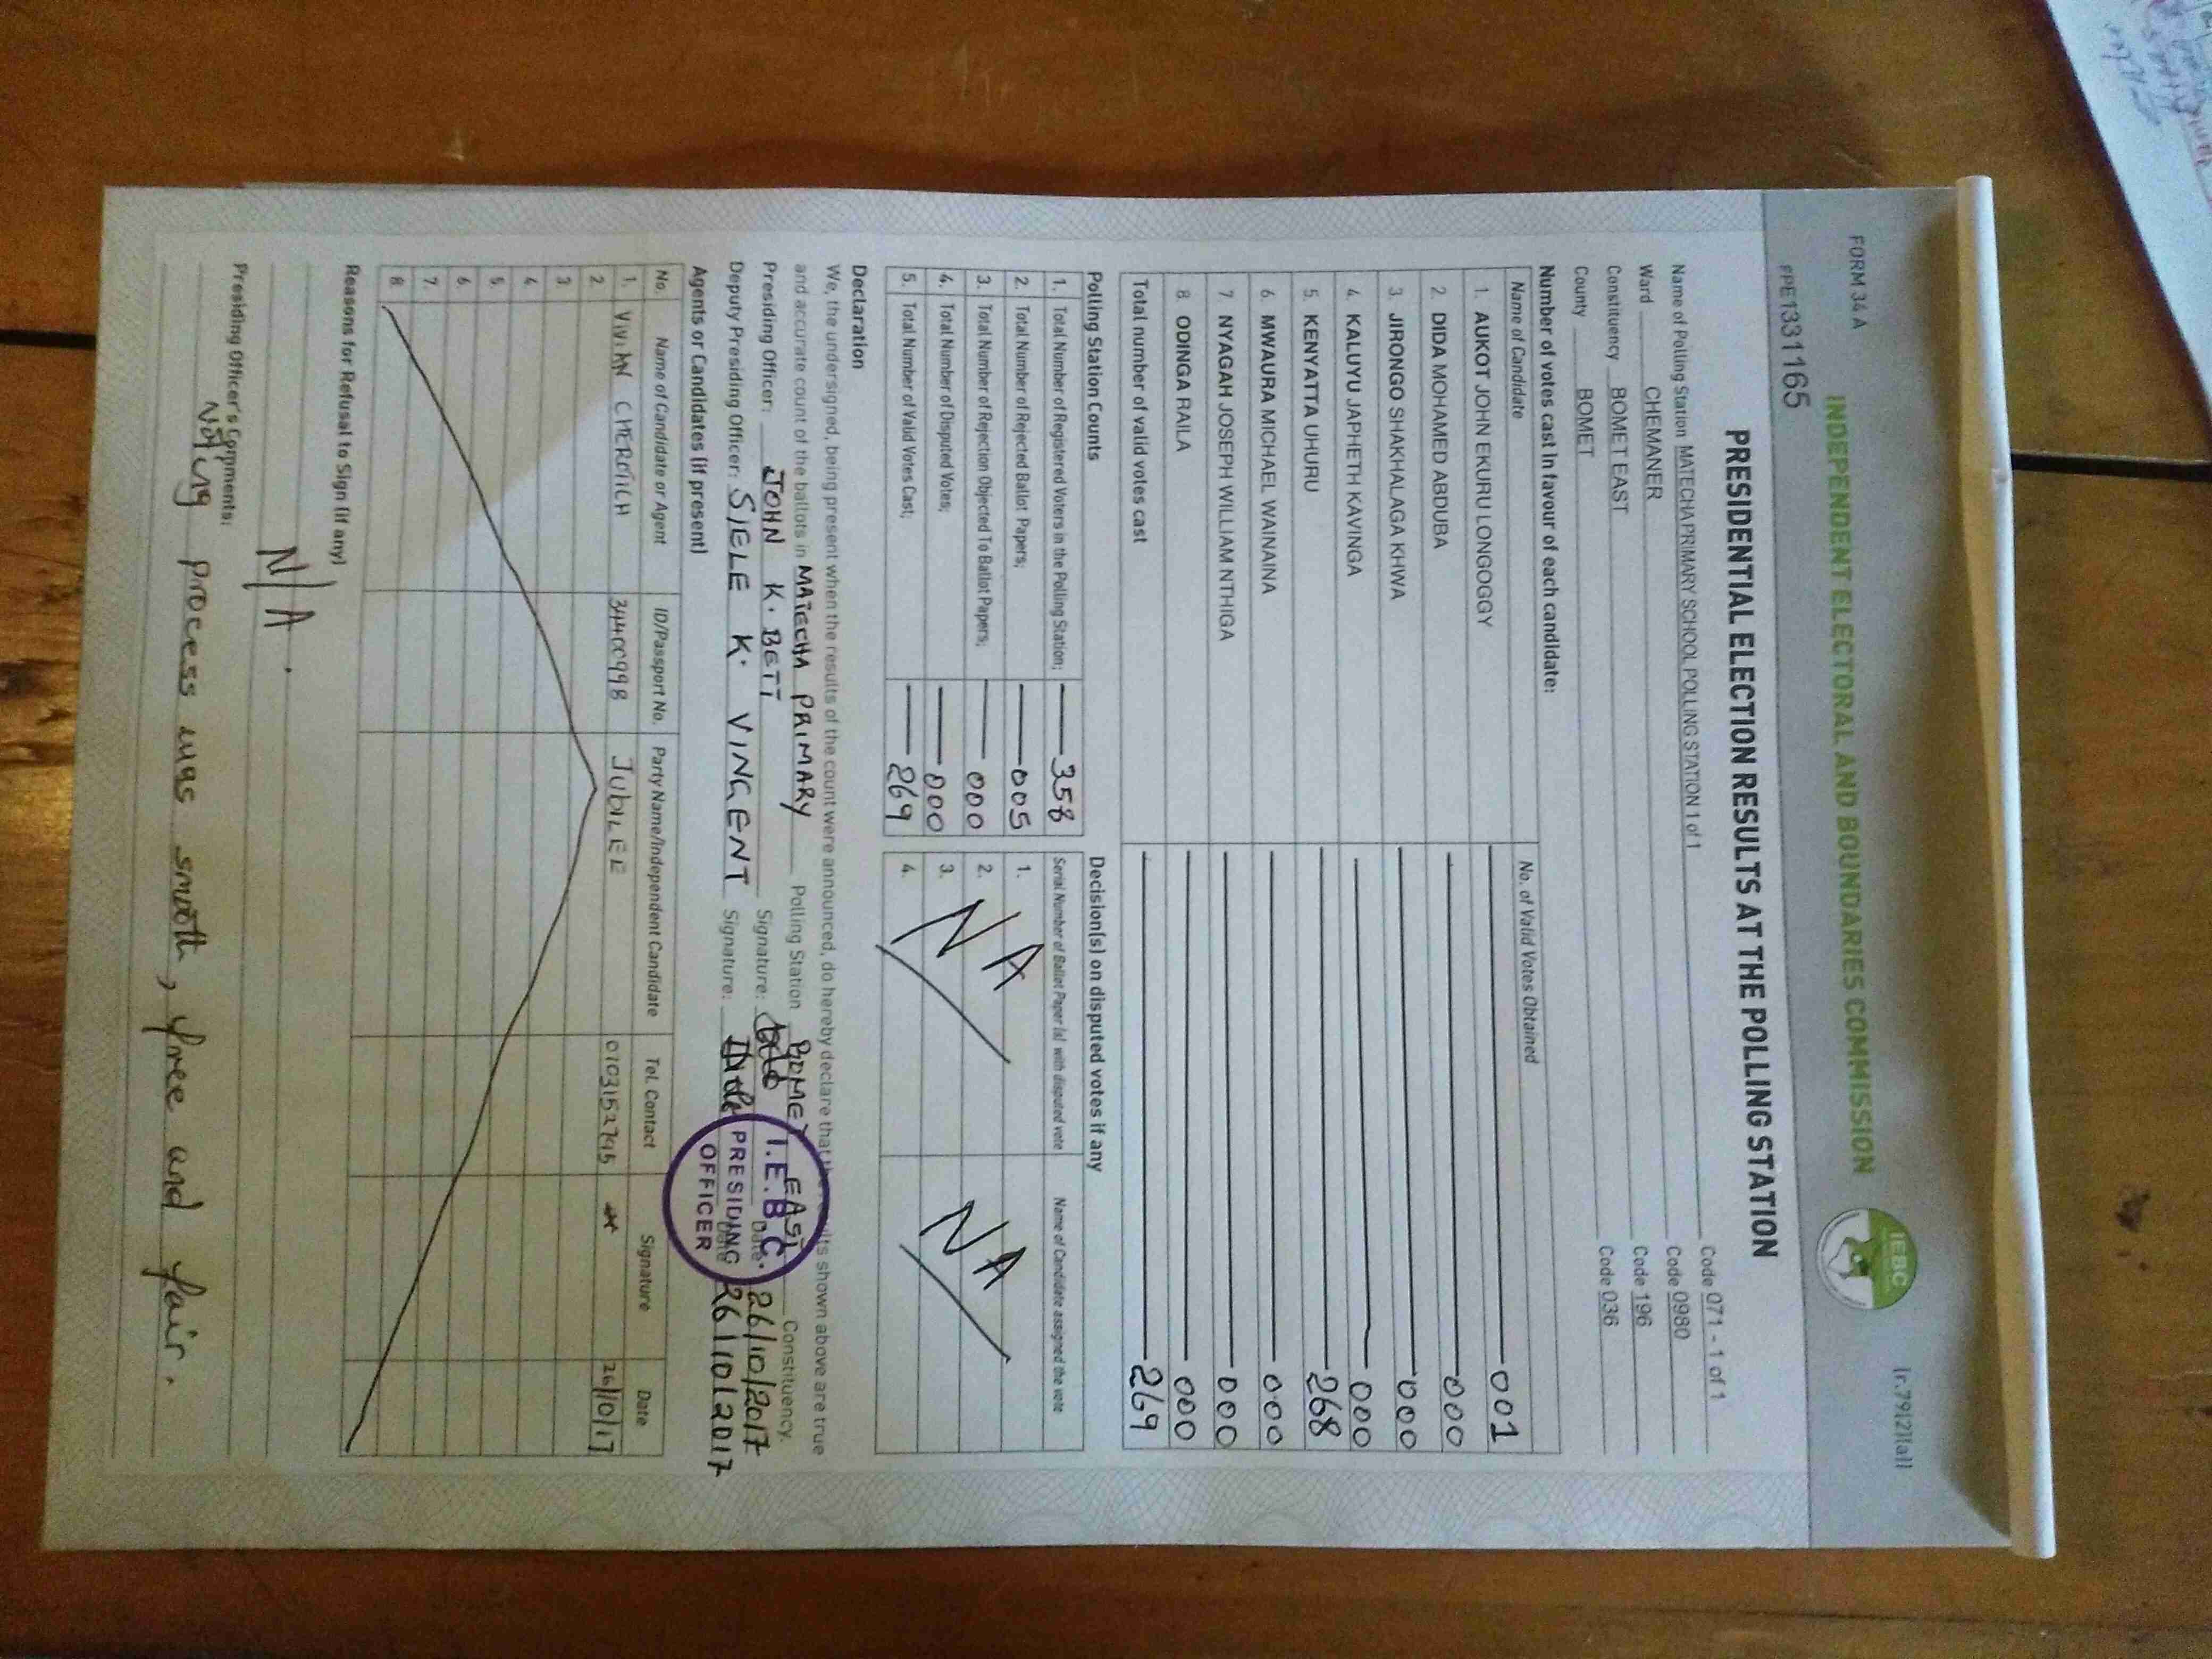 FORM 34 A
(r.79(2)(a))
INDEPENDENT ELECTORAL AND BOUNDARIES COMMISSION
IEBC
PPE1331165
PRESIDENTIAL ELECTION RESULTS AT THE POLLING STATION
Name of Polling Station MATECHA PRIMARY SCHOOL POLLING STATION 1 of 1 Code 071 - 1 of 1
Ward CHEMANER Code 0980
Constituency BOMET EAST Code 196
County BOMET Code 036
Number of votes cast in favour of each candidate:
Name of Candidate No. of Valid Votes Obtained
1. AUKOT JOHN EKURU LONGOGGY 001
2. DIDA MOHAMED ABDUBA 000
3. JIRONGO SHAKHALAGA KHWA 000
4. KALUYU JAPHETH KAVINGA 000
5. KENYATTA UHURU 268
6. MWAURA MICHAEL WAINAINA 000
7. NYAGAH JOSEPH WILLIAM NTHIGA 000
8. ODINGA RAILA 000
Total number of valid votes cast 269
Polling Station Counts
1. Total Number of Registered Voters in the Polling Station; 358
2. Total Number of Rejected Ballot Papers; 005
3. Total Number of Rejection Objected To Ballot Papers; 000
4. Total Number of Disputed Votes; 000
5. Total Number of Valid Votes Cast; 269
Decision(s) on disputed votes if any
Serial Number of Ballot Paper (s) with disputed vote Name of Candidate assigned the vote
1.
2.
3.
4.
NA NA
Declaration
We, the undersigned, being present when the results of the count were announced, do hereby declare that the results shown above are true
and accurate count of the ballots in MATECHA PRIMARY Polling Station BOMET EAST Constituency.
Presiding Officer: JOHN K. BETT Signature: Date: 26/10/2017
Deputy Presiding Officer: SIELE K. VINCENT Signature: Date 26/10/2017
I.E.B.C.
PRESIDING
OFFICER
Agents or Candidates (if present)
No. Name of Candidate or Agent ID/Passport No. Party Name/Independent Candidate Tel. Contact Signature Date
1. VIVIAN CHEROTICH 34400998 JUBILEE 0103152795 26/10/17
2.
3
4
5
6
7
8
Reasons for Refusal to Sign (if any)
N/A.
Presiding Officer's Comments:
Voting process was smooth, free and fair.